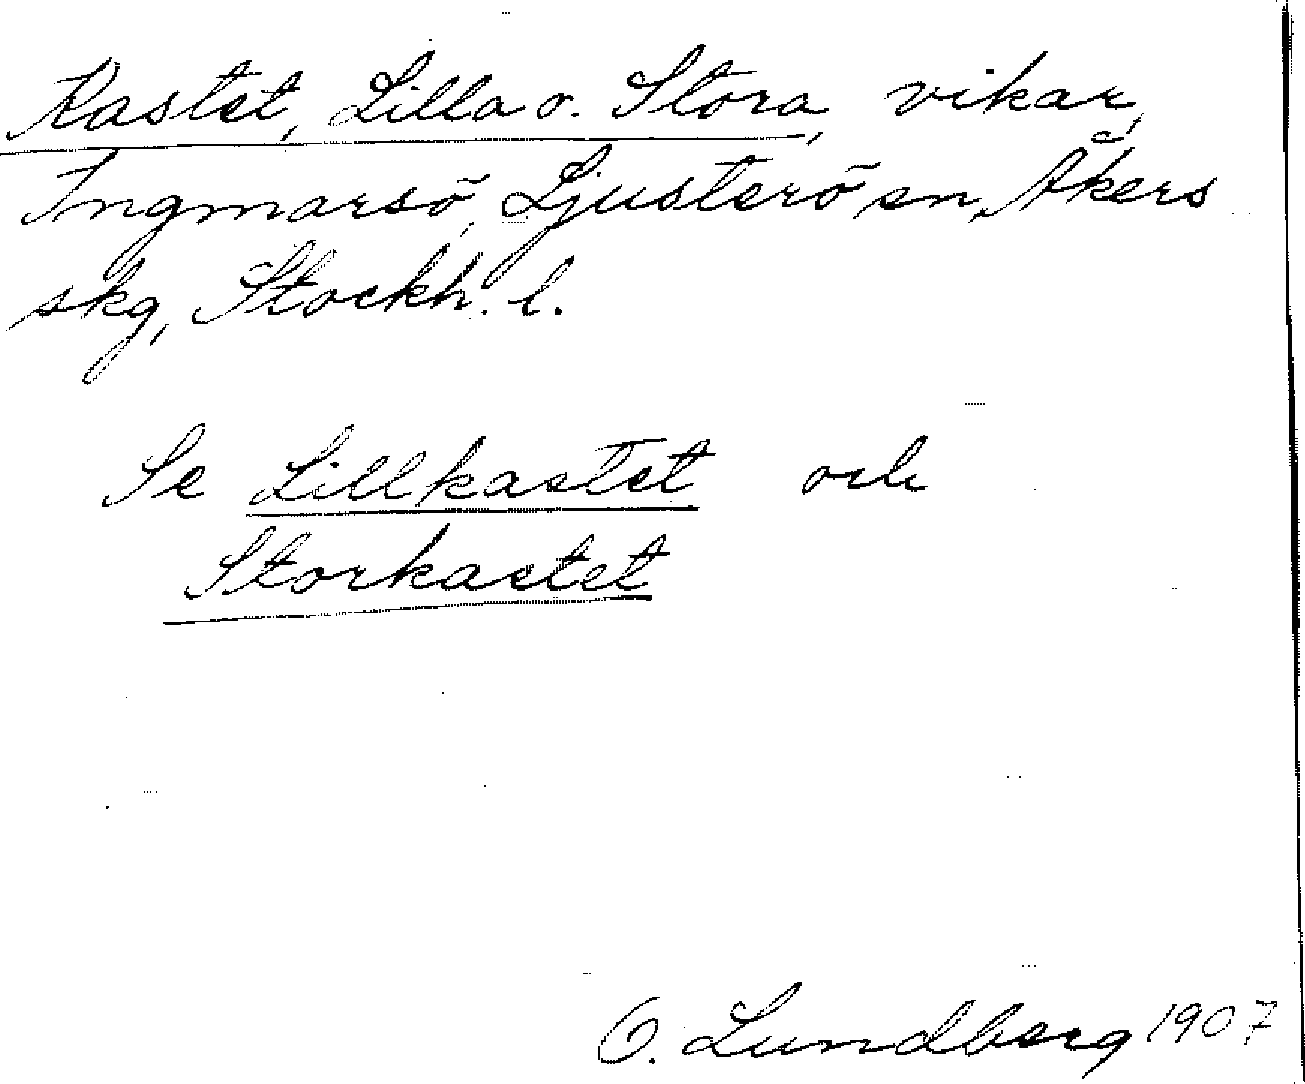 Kastet, Lilla o. Stora, vikar,
Ingmarsö, Ljusterö sn, Åkers
skg, Stockh. l.
Se Lillkastet och
Storkastet
O. Lundberg 1907